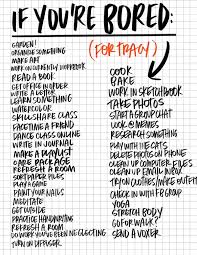 IF YOU'RE BORED:
(FOR TRACY)
GARDEN!
ORGANIZE SOMETHING
MAKE ART
WORK ON CURRENT WORKBOOK
READ A BOOK
GET OFFICE IN ORDER
WRITE A LETTER
LEARN SOMETHING
WATERCOLOR
SKILLSHARE CLASS
FACETIME A FRIEND
DANCE CLASS ONLINE
WRITE IN JOURNAL
MAKE A PLAYLIST
CARE PACKAGE
REFRESH A ROOM
SORT PAPER FILES
PLAY A GAME
PAINT YOUR NAILS
MEDITATE
GET OUTSIDE
PRACTICE HANDWRITING
REFRESH A ROOM
DO WORK YOU'VE BEEN NEGLECTING
TURN ON DIFFUSER
COOK
BAKE
WORK IN SKETCHBOOK
TAKE PHOTOS
START A GROUP CHAT
LOOK @ MEMES
RESEARCH SOMETHING
PLAY WITH THE CATS
DELETE PHOTOS ON PHONE
CLEAN UP COMPUTER FILES
CLEAN UP EMAIL INBOX
TRY ON CLOTHES/MAKE OUTFITS
CHECK IN WITH FB GROUP
YOGA
STRETCH BODY
GO FOR WALK?
SEND A VOXER